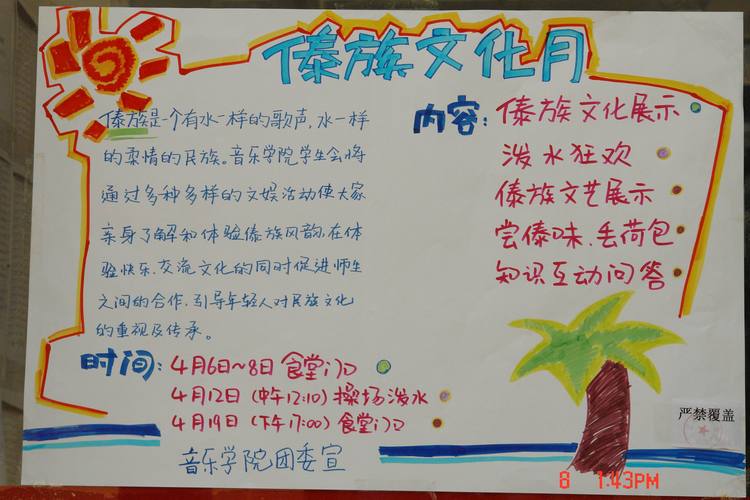 傣族文化月
傣族是一个有水一样的歌声,水一样
的柔情的民族。音乐学院学生会将
通过多种多样的文娱活动使大家
亲身了解和体验傣族风韵,在体
验快乐、交流文化的同时促进师生
之间的合作,引导年轻人对民族文化
的重视及传承。
内容:傣族文化展示
泼水狂欢
傣族文艺展示
尝傣味、丢荷包
知识互动问答
时间:4月6日~8日 食堂门口
4月12日(中午12:10)操场泼水
4月19日(下午17:00)食堂门口
音乐学院团委宣
严禁覆盖
8 1:43PM